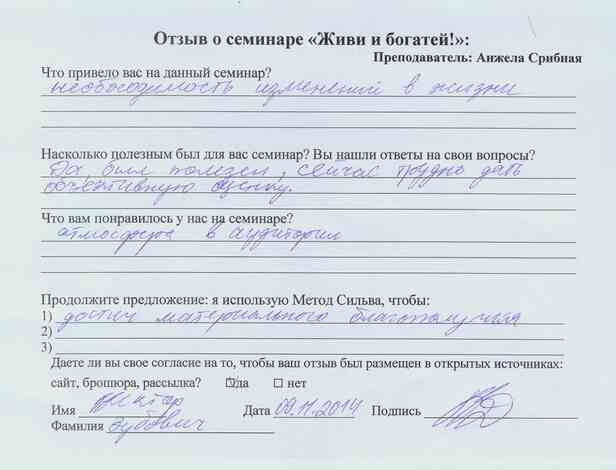 Отзыв о семинаре «Живи и богатей!»:
Преподаватель: Анжела Срибная
Что привело вас на данный семинар?
необходимость изменений в жизни
Насколько полезным был для вас семинар? Вы нашли ответы на свои вопросы?
Да, был полезен, сейчас трудно дать
объективную оценку.
Что вам понравилось у нас на семинаре?
атмосфера в аудитории
Продолжите предложение: я использую Метод Сильва, чтобы:
1) достич материального благополучия
2)
3)
Даете ли вы свое согласие на то, чтобы ваш отзыв был размещен в открытых источниках:
сайт, брошюра, рассылка? ☑да ☐ нет
Имя Виктор Дата 09.11.2014 Подпись
Фамилия Зубович